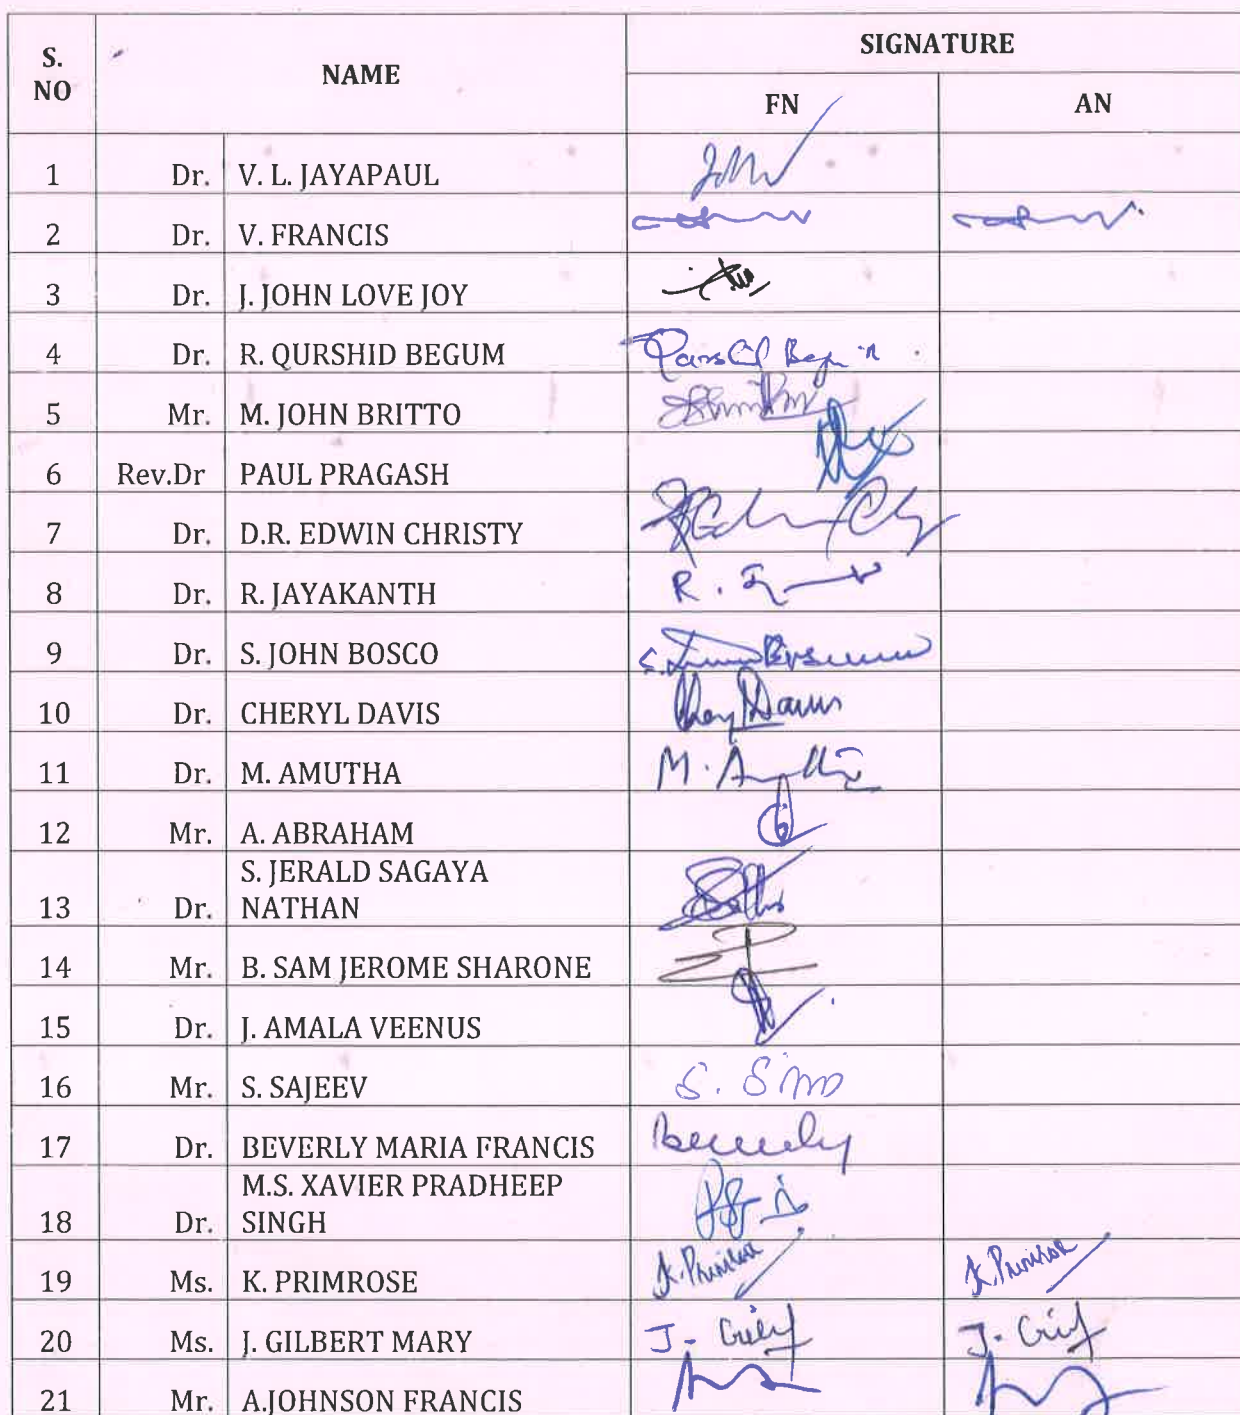 S. NO NAME SIGNATURE
FN AN
1 Dr. V. L. JAYAPAUL
2 Dr. V. FRANCIS
3 Dr. J. JOHN LOVE JOY
4 Dr. R. QURSHID BEGUM
5 Mr. M. JOHN BRITTO
6 Rev.Dr PAUL PRAGASH
7 Dr. D.R. EDWIN CHRISTY
8 Dr. R. JAYAKANTH R.
9 Dr. S. JOHN BOSCO
10 Dr. CHERYL DAVIS
11 Dr. M. AMUTHA M.
12 Mr. A. ABRAHAM
S. JERALD SAGAYA
13 Dr. NATHAN
14 Mr. B. SAM JEROME SHARONE
15 Dr. J. AMALA VEENUS
16 Mr. S. SAJEEV S.
17 Dr. BEVERLY MARIA FRANCIS Beverly
M.S. XAVIER PRADHEEP
18 Dr. SINGH
19 Ms. K. PRIMROSE K. Primrose K. Primrose
20 Ms. J. GILBERT MARY J. J.
21 Mr. A.JOHNSON FRANCIS